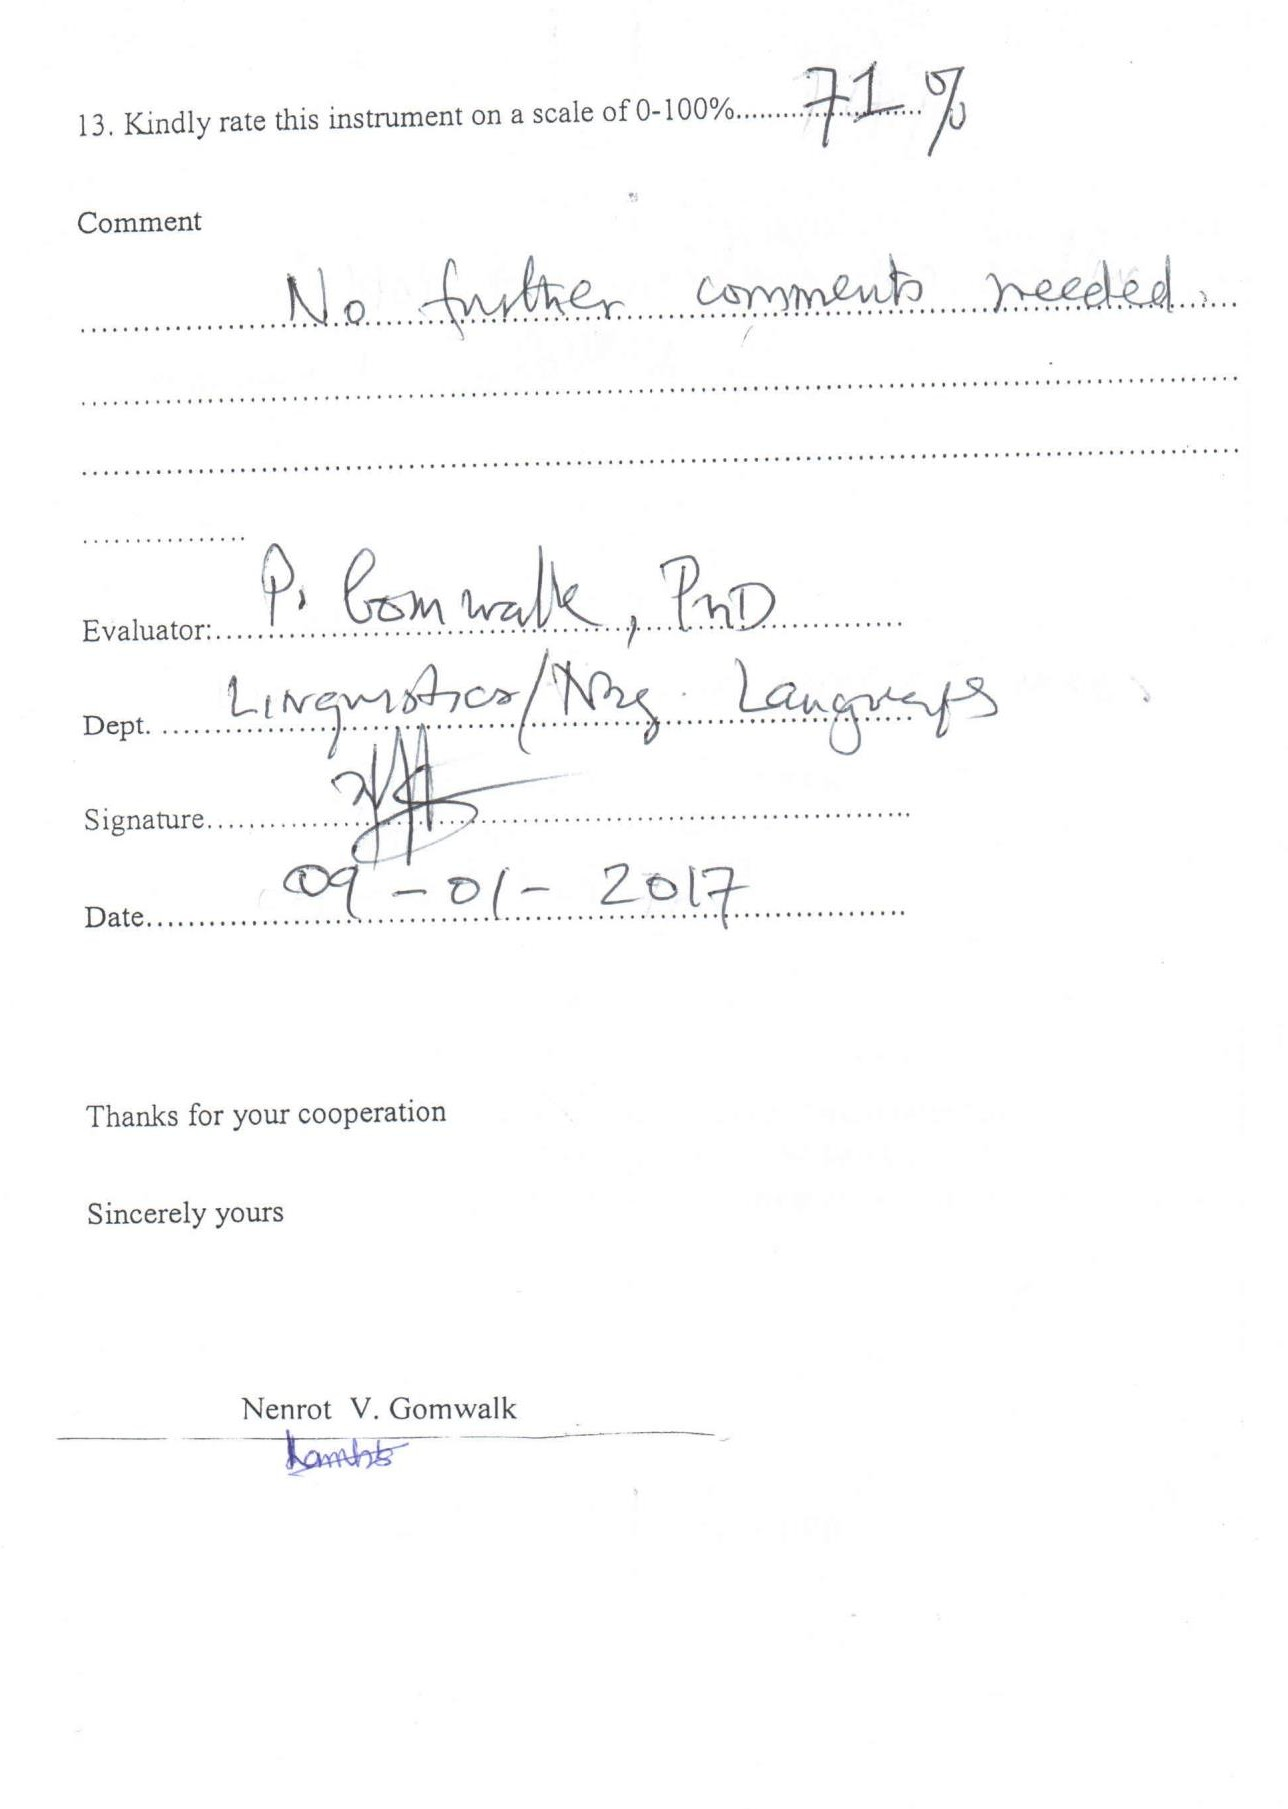 13. Kindly rate this instrument on a scale of 0-100%..........71%
Comment
No further comments needed.
Evaluator: P. Gomwalk, PhD
Dept. Linguistics/Nig. Languages
Signature
Date 09-01-2017
Thanks for your cooperation
Sincerely yours
Nenrot V. Gomwalk